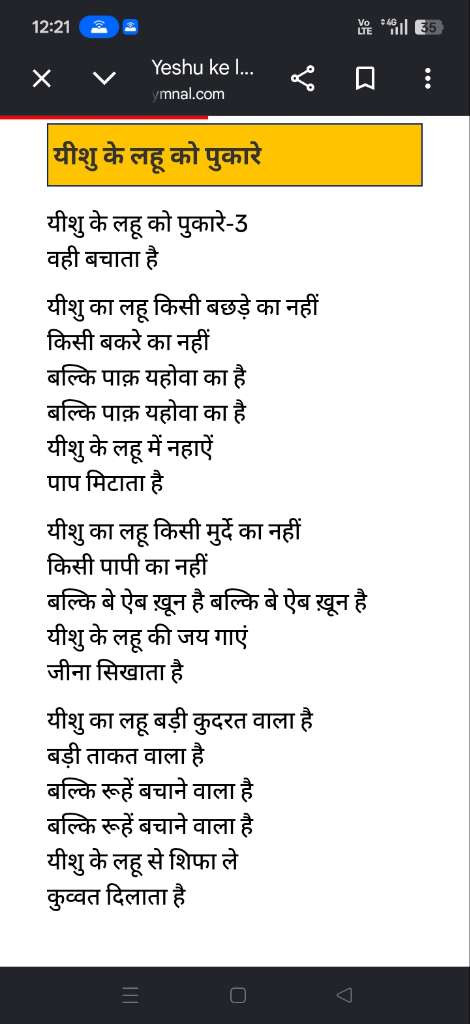 12:21
Vo LTE 4G 35
Yeshu ke l...
ymnal.com
यीशु के लहू को पुकारे
यीशु के लहू को पुकारे-3
वही बचाता है
यीशु का लहू किसी बछड़े का नहीं
किसी बकरे का नहीं
बल्कि पाक़ यहोवा का है
बल्कि पाक़ यहोवा का है
यीशु के लहू में नहाऐं
पाप मिटाता है
यीशु का लहू किसी मुर्दे का नहीं
किसी पापी का नहीं
बल्कि बे ऐब ख़ून है बल्कि बे ऐब ख़ून है
यीशु के लहू की जय गाएं
जीना सिखाता है
यीशु का लहू बड़ी कुदरत वाला है
बड़ी ताकत वाला है
बल्कि रूहें बचाने वाला है
बल्कि रूहें बचाने वाला है
यीशु के लहू से शिफा ले
कुव्वत दिलाता है